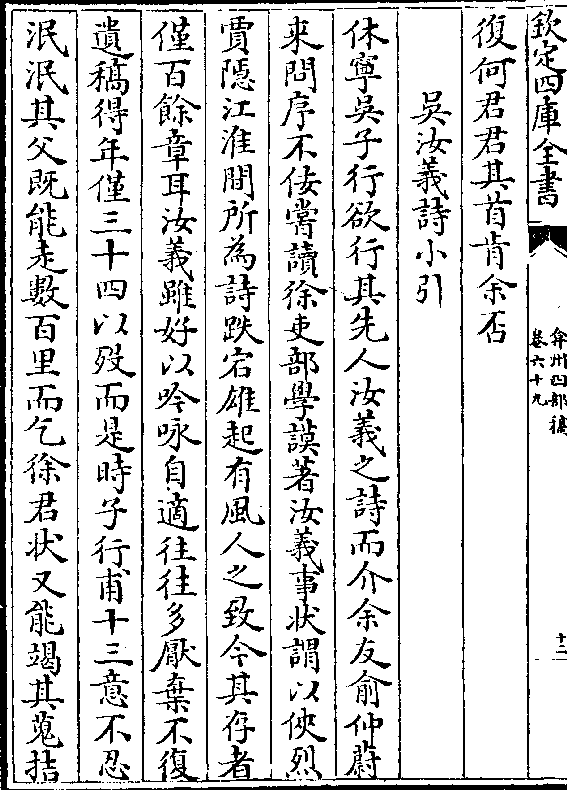 欽定四庫全書
弇州四部稿
卷六十九
十二
復何君君其首肯余否
吳汝義詩小引
休寧吳子行欲行其先人汝義之詩而介余友俞仲蔚
來問序不佞嘗讀徐吏部學謨著汝義事狀謂以俠烈
賈隱江淮間所為詩跌宕雄起有風人之致今其存者
僅百餘章耳汝義雖好以吟咏自適往往多厭棄不復
遺稿得年僅三十四以歿而是時子行甫十三意不忍
泯泯其父既能走數百里而乞徐君狀又能竭其蒐括